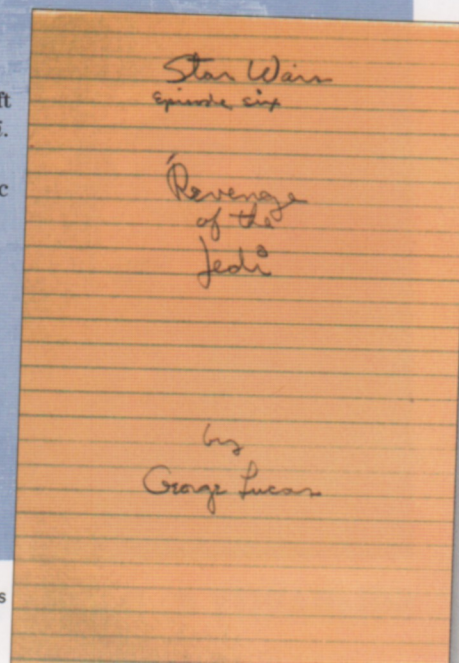 Star Wars
Episode six
Revenge
of the
Jedi
by
George Lucas